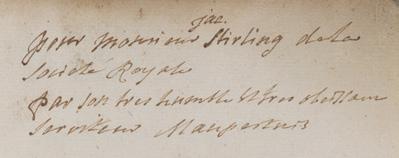 jac.
pour monsieur Stirling de la
Societé Royale
par son tres humble & tres obeissant
Serviteur Maupertuis